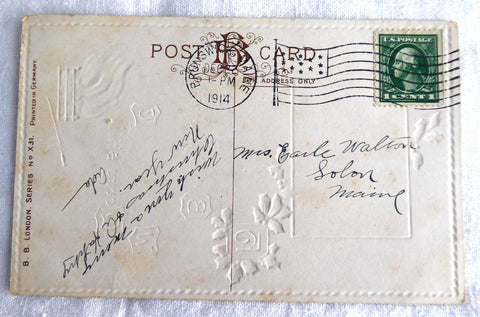 POST CARD
BB
BRUNSWICK MAINE
DEC
PM
1914
ADDRESS ONLY
U.S. POSTAGE
1 CENT 1
B. B. LONDON, SERIES No X31. PRINTED IN GERMANY.
Wish you a merry
Christmas & a Happy
New year.
Ada
Mrs. Earle Walton
Solon
Maine